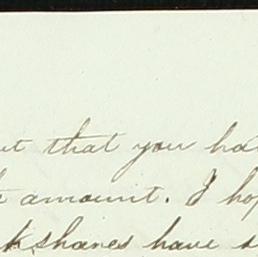 that you ha
amount. I hop
shares have s